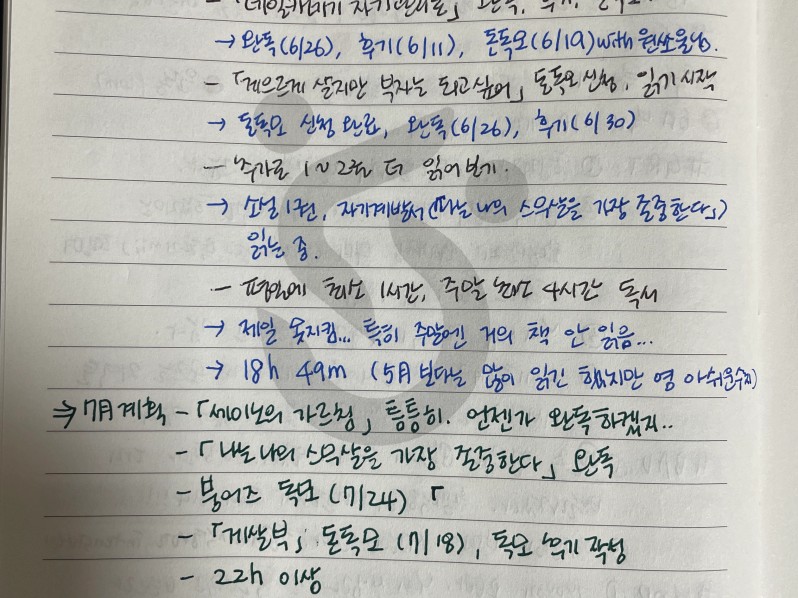 → 완독(6/26), 후기(6/11), 돈독모(6/19) with 원쏘울님.
- 「게으르게 살지만 부자는 되고싶어」 돈독모 신청, 읽기 시작
→ 돈독모 신청 완료, 완독(6/26), 후기(6/30)
- 추가로 1~2권 더 읽어보기.
→ 소설 1권, 자기계발서 (「나는 나의 스무살을 가장 존중한다」)
읽는 중.
- 평일에 최소 1시간, 주말 최소 4시간 독서
→ 제일 못지킴... 특히 주말엔 거의 책 안 읽음...
→ 18h 49m (5月 보다는 많이 읽긴 했지만 영 아쉬운 수치)
⇒ 7月 계획 - 「세이노의 가르침」 틈틈히. 언젠가 완독하겠지..
- 「나는 나의 스무살을 가장 존중한다」 완독
- 붕어즈 독모 (7/24) 「
- 「게살부」 돈독모 (7/18), 독모 후기 작성
- 22h 이상